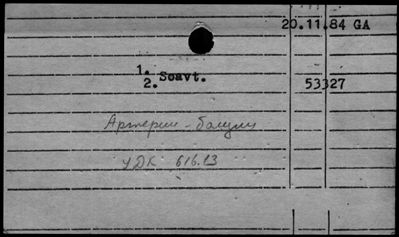 20.11.84 GA
1.
2. Soavt.
53327
Артерии - болезни
УДК 616.13